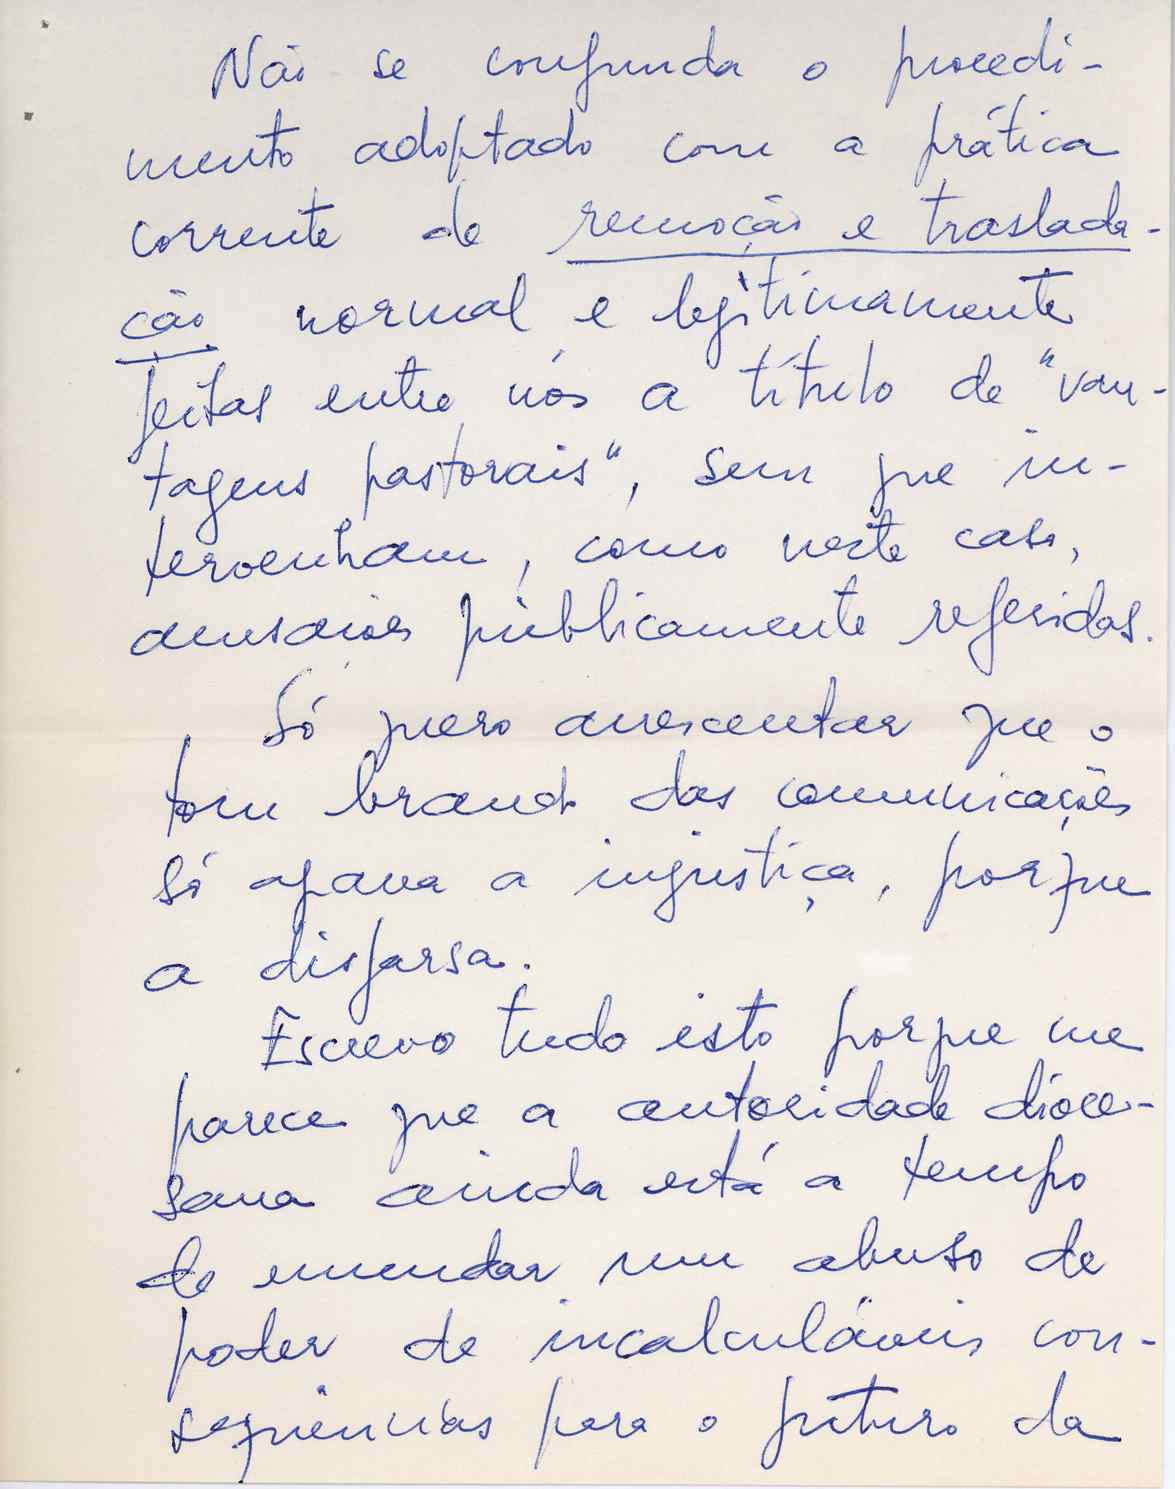 Não se confunda o procedi-
mento adoptado com a prática
corrente de remoção e traslada-
ção normal e legitimamente
feitas entre nós a título de "van-
tagens pastorais", sem que in-
tervenham, como neste caso,
acusações pùblicamente referidas.
Só quero acrescentar que o
tom brando das comunicações
só agrava a injustiça, porque
a disfarsa.
Escrevo tudo isto porque me
parece que a autoridade dioce-
sana ainda está a tempo
de emendar um abuso de
poder de incalculáveis con-
sequências para o futuro da